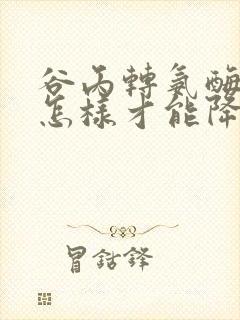 谷丙轉氨酶
怎樣才能降
冒鈷鋒